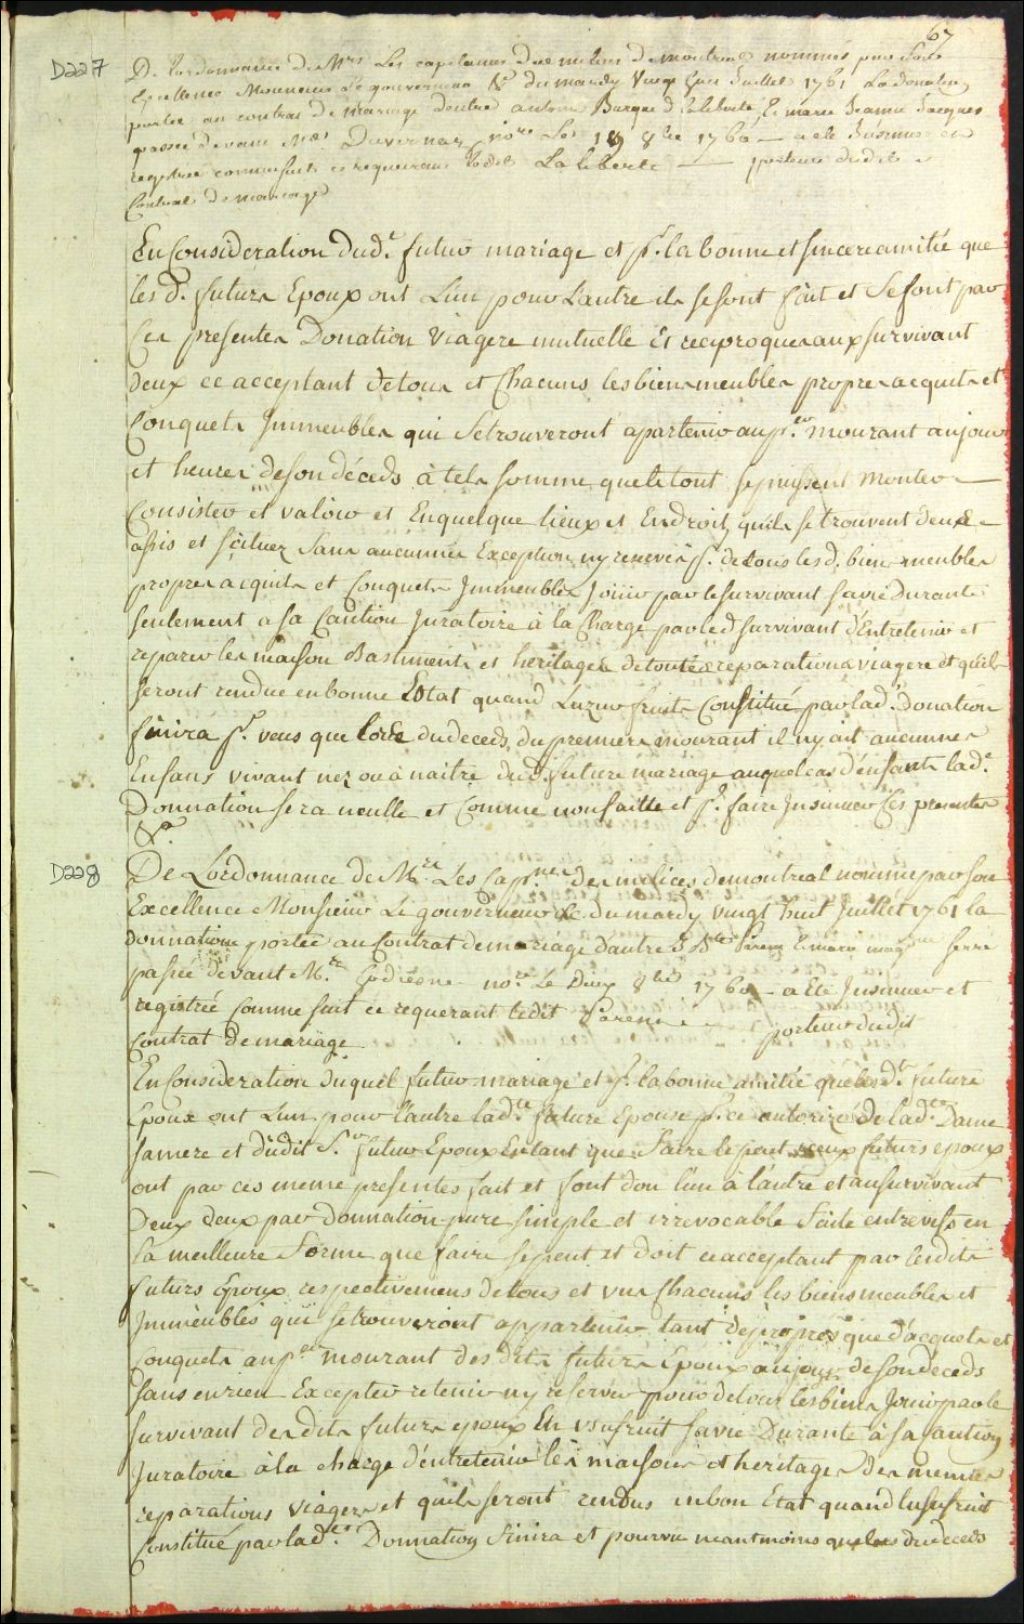 67
D227
D. Lordonnance de Mrs Les capitaines des milices de montreal nommés par Son
Excellence Monsieur Le gouverneur &c du mardy Vingt huit Juillet 1761 La donation
portée au contrat de mariage d'entre antoine Barque d. Laliberté, & marie Jeanne Jacques
passée devant Me Duvernay nore Les 19 8bre 1760 — a été Insinuée et
registree comme suit ce requerant ledit La liberté — porteur dudit
Contrat de mariage
En Consideration dud.t futur mariage et pr. la bonne et sincere amitié que
les d. futurs Epoux ont Lun pour Lautre ils se sont fait et se font par
Ces presentes Donation Viagere mutuelle Et reciproques aux survivant
deux ce acceptant de tous et Chacuns les biens meubles propres acquits et
Conquets Immeubles qui se trouveront apartenir au pr.er mourant au jour
et heures de son décéds à tels somme que le tout se puissent monter —
Consister et valoir et En quelque lieux et Endroit quils se trouvent deüe
assis et scituez sans aucunnes Exception ny reserves pr. de tous les d. biens meubles
propres acquits et Conquets Immeubles Jouir par le survivant sa vie durante
seulement a sa Caution Juratoire à la Charge par led survivant d'Entretenir et
reparer les maison Bastiments et heritages de toutes reparations viagere et quils
seront rendue en bonne Estat quand Luzuufruit Constitué par lad.e Donation
finira pr. veus que lors du deceds du premiers mourant il ny ait aucunnes
Enfans vivant nez ou à naitre dud. future mariage auquel cas d'enfants lad.e
Donnation sera neulle et Comme non faitte et pr. faire Insinuer Ces presentes
&a
D228
De Lordonnance de Mrs Les Capnes des milices de montreal nommé par son
Excellence Monsieur Le gouverneur &c. du mardy vingt huit Juillet 1761 la
donnation portée au Contrat de mariage d'autre
passée devant Me nore Le Deux 8bre 1760 — a été Insinuer et
registrée Comme suit ce requerant ledit Parent — porteur dudit
Contrat de mariage
En Consideration duquel futur mariage et pr. la bonne amitié que les d.ts future
Epoux ont Lun pour l'autre lad.te future Epouse pr. ce autorizé de lad.te Dame
sa mere et dudit Sr futur Epoux Entant que faire le peut iceux futurs epoux
ont par ces meme presentes fait et font don l'un à l'autre et au survivant
Deux deux par donnation pure simple et irrevocable faite entrevifs en
la meilleure forme que faire se peut et doit ce acceptant par lesdits
futurs Epoux respectivemens de tous et uns Chacuns les biens meubles et
Immeubles qui se trouveront appartenir tant de propres que d'acquets et
Conquets au per mourant des dits futurs Epoux au jour de son deceds
sans en rien Excepter retenir ny reserver pour de tous les biens Jouir par le
survivant des dits futurs epoux En usufruit sa vie Durante à sa Caution
Juratoire à la charge d'entretenir les maisons et heritages des memes
reparations viagers et quils seront rendus en bon Etat quand lusufruit
Constitué par lad.te Donnation finira et pourvu neantmoins que lors du deceds